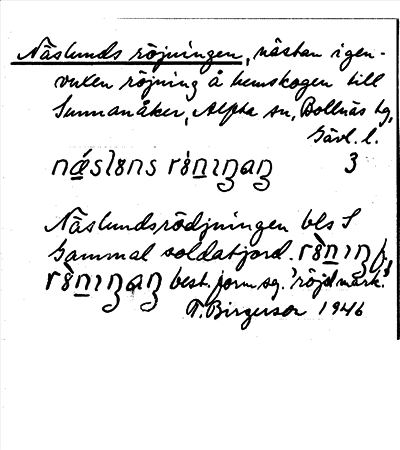 Näslunds röjningen, nästan igen-
vuxen röjning å hemskogen till
Sunnanåker, Alfta sn, Bollnäs tg,
Gävl. l.
3
Näslundsrödjningen bls S
Gammal soldatjord.
best. form sg. 'röjd mark.'
T. Birgerson 1946